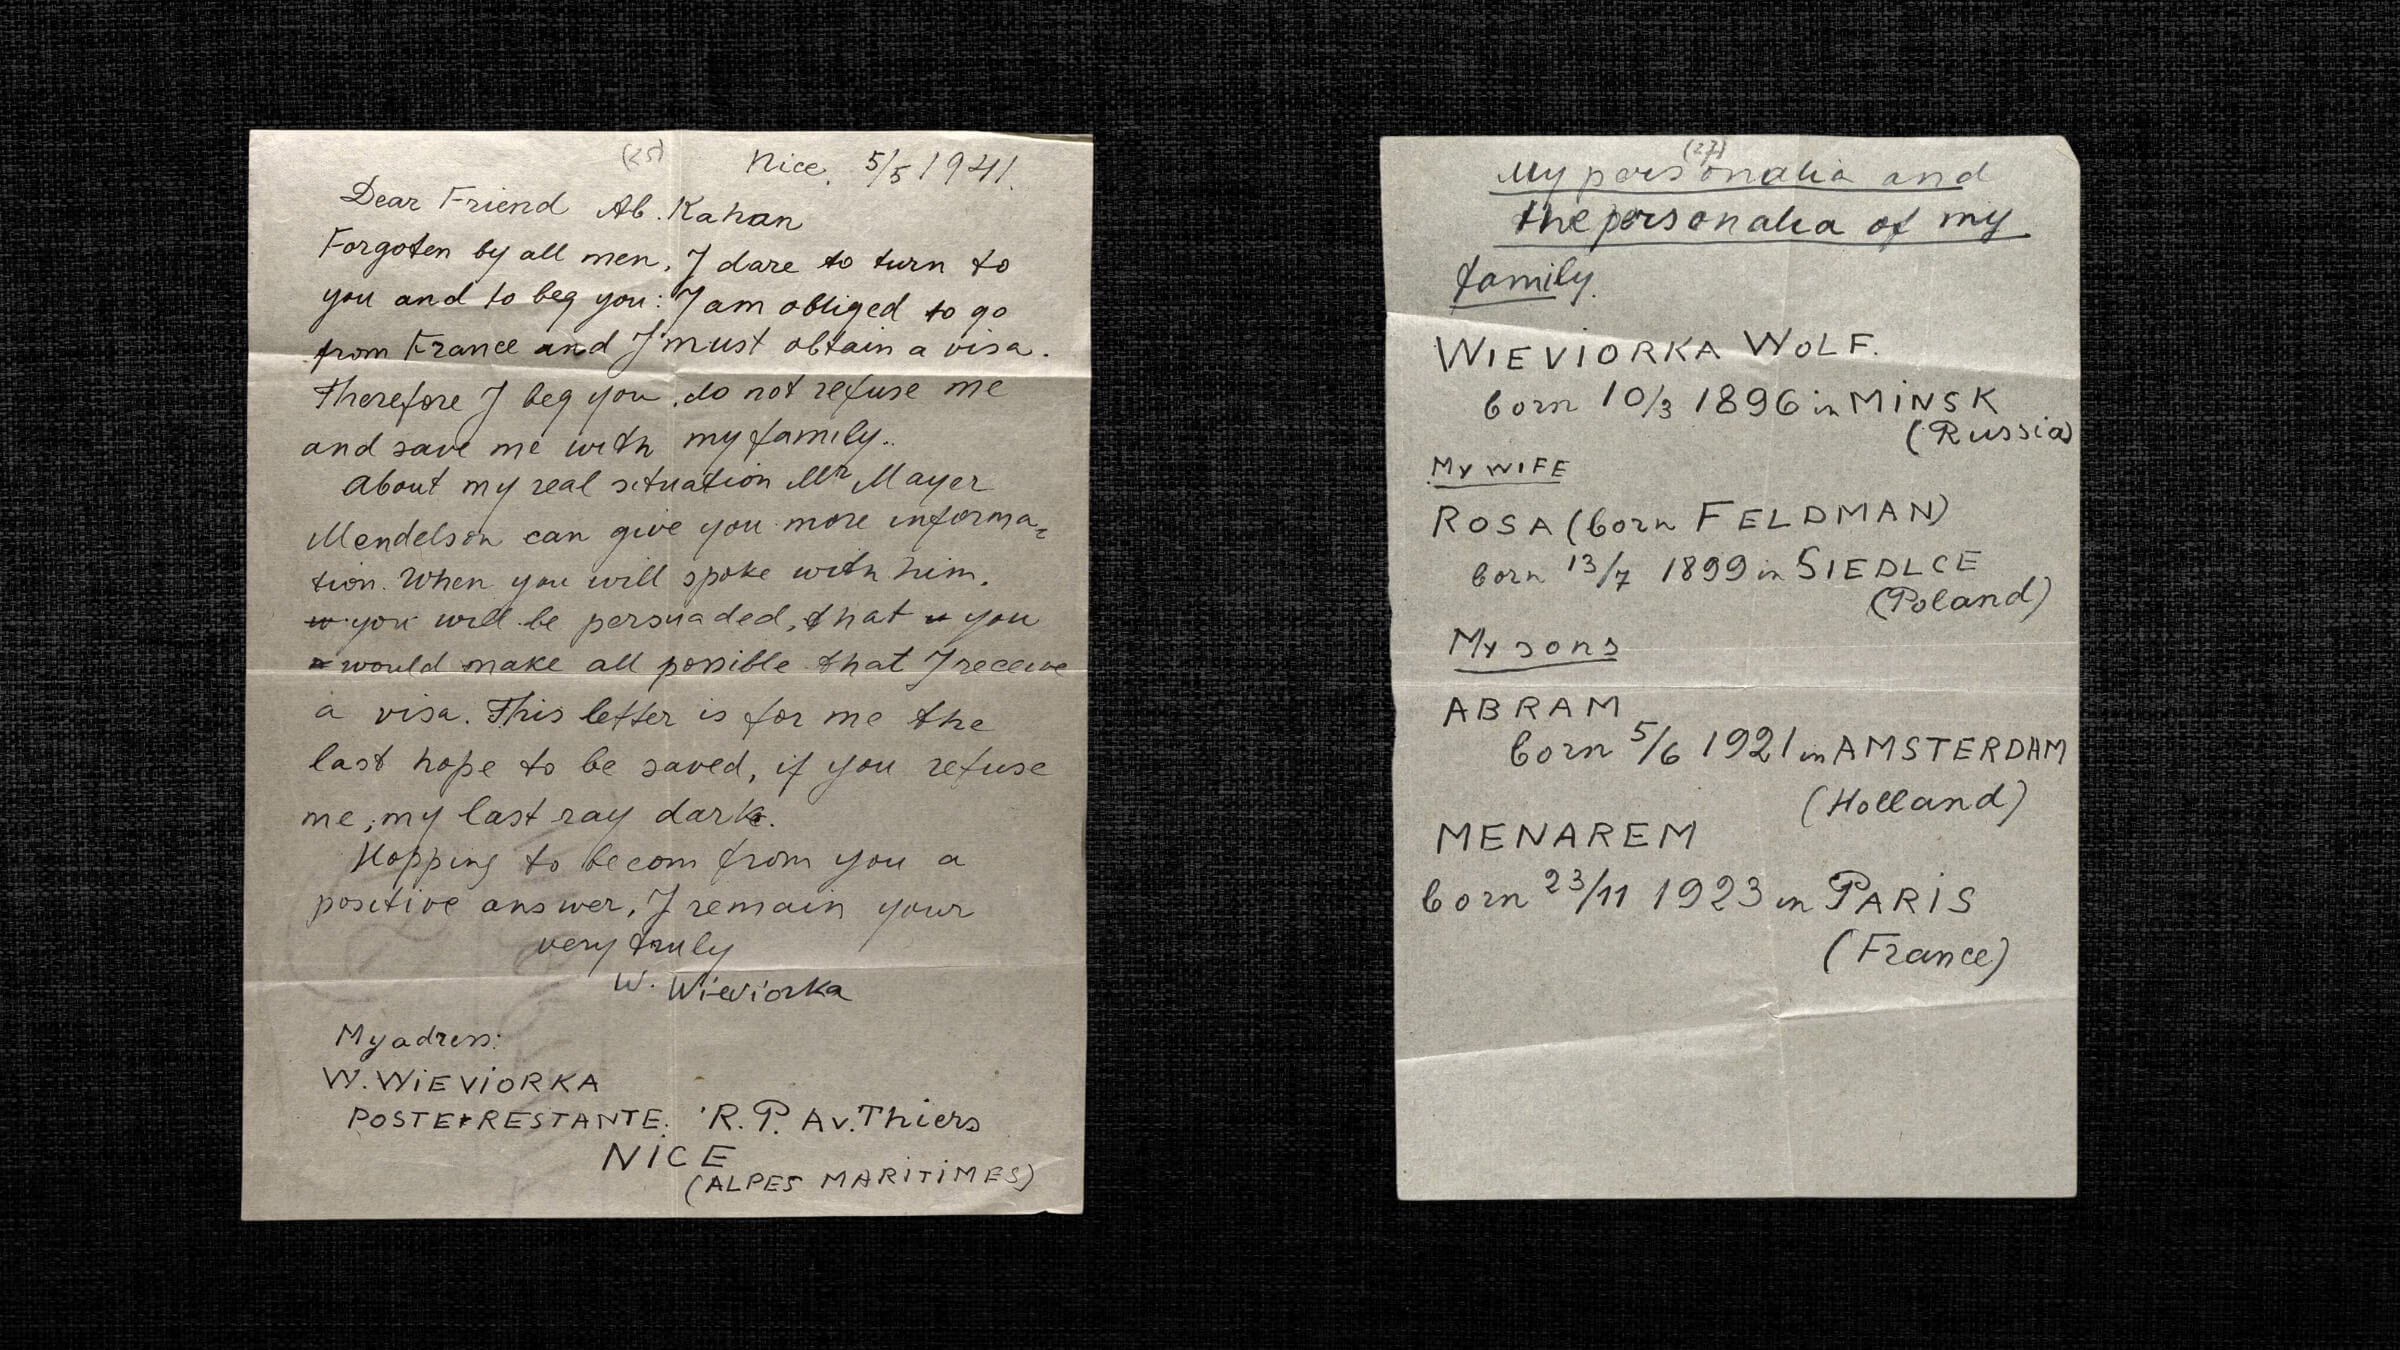 (25)
Nice, 5/5 1941.
Dear Friend Ab. Kahan
Forgoten by all men, I dare to turn to
you and to beg you: I am obliged to go
from France and I must obtain a visa.
Therefore I beg you, do not refuse me
and save me with my family..
About my real situation Mr Mayer
Mendelson can give you more informa=
tion. When you will spoke with him,
you will be persuaded, that you
would make all possible that I receive
a visa. This letter is for me the
last hope to be saved, if you refuse
me, my last ray dark.
Hopping to becom from you a
positive answer, I remain your
very truly
W. Wieviorka
My adress:
W. WIEVIORKA
POSTE-RESTANTE. R.P. Av. Thiers
NICE
(ALPES MARITIMES)
(27)
My personalia and
the personalia of my
family.
WIEVIORKA WOLF.
born 10/3 1896 in MINSK
(Russia)
MY WIFE
ROSA (born FELDMAN)
born 13/7 1899 in SIEDLCE
(Poland)
My sons
ABRAM
born 5/6 1921 in AMSTERDAM
(Holland)
MENAREM
born 23/11 1923 in PARIS
(France)